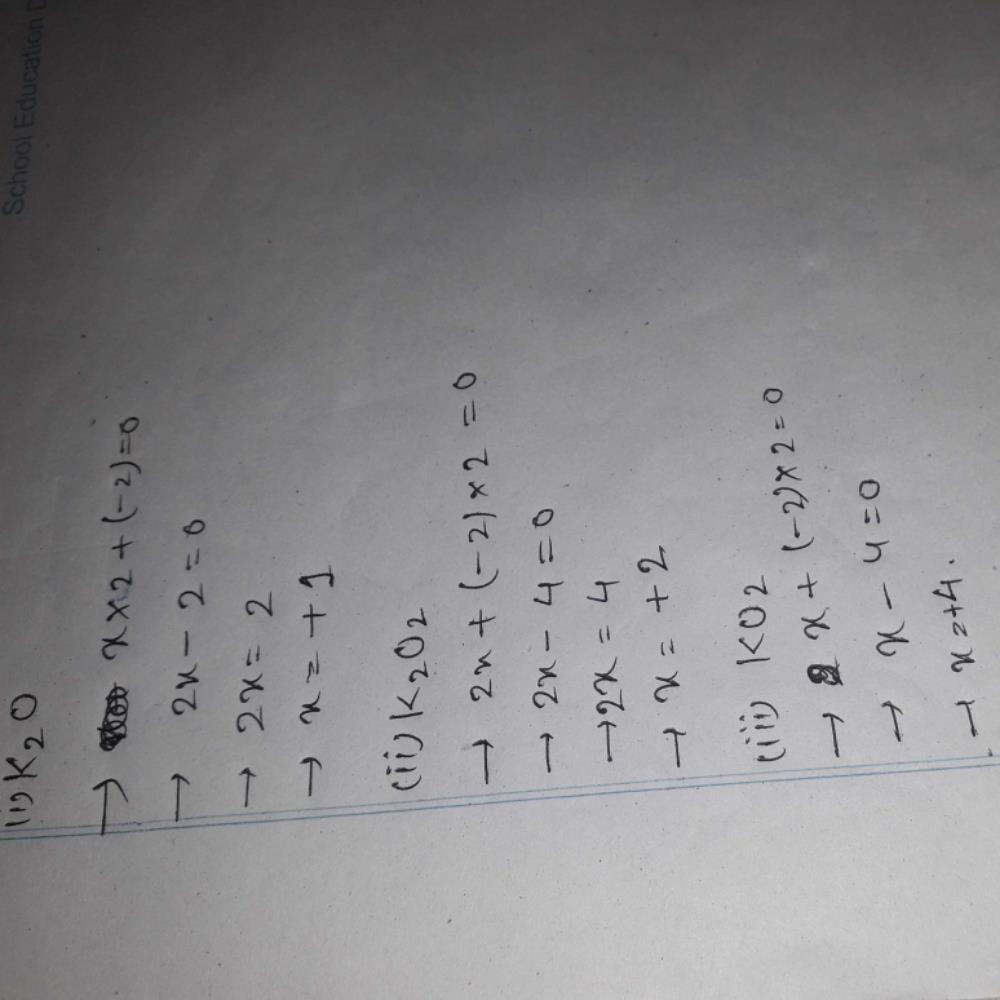 School Education D
(i) K₂O
→ x×2+(-2)=0
→ 2x-2=0
→ 2x=2
→ x=+1
(ii) K₂O₂
→ 2x+(-2)×2=0
→ 2x-4=0
→ 2x=4
→ x=+2
(iii) KO₂
→ x+(-2)×2=0
→ x-4=0
→ x=+4.